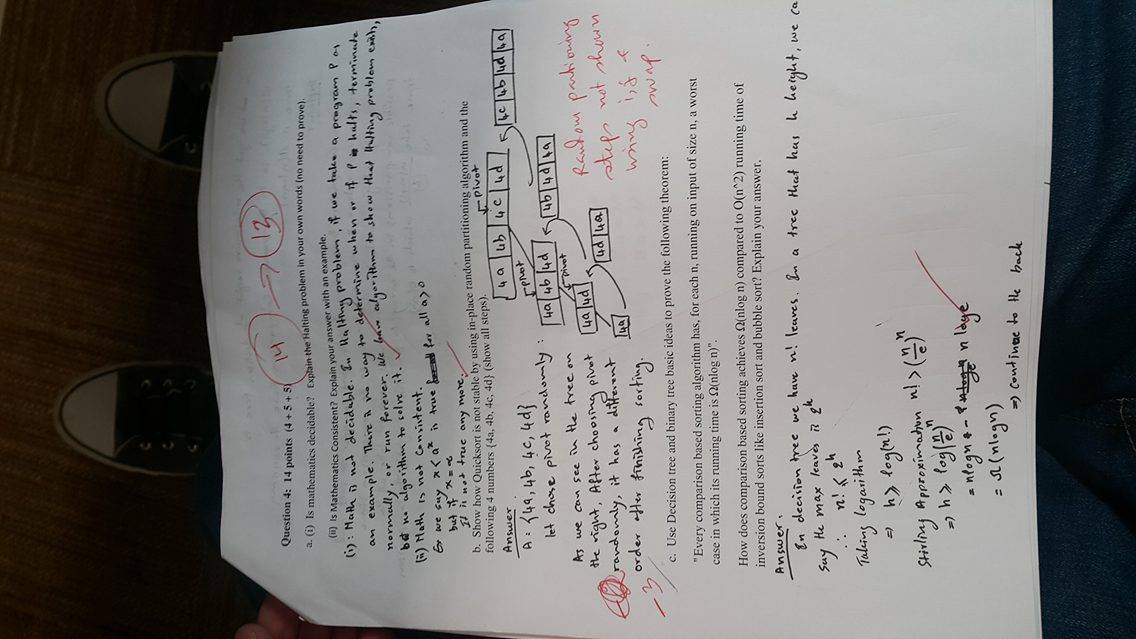 Question 4: 14 points (4 + 5 + 5)
14 → 13
a. (i) Is mathematics decidable? Explain the Halting problem in your own words (no need to prove).
(ii) Is Mathematics Consistent? Explain your answer with an example.
(i): Math is not decidable. In Halting problem, if we take a program P as
an example. There is no way to determine when or if P halts, terminate
normally, or run forever. We have algorithm to show that Halting problem exists,
but no algorithm to solve it.
(ii) Math is not consistent.
Ex we say x < a^x is true for all a>0
but if x = ∞
It is not true any more.
b. Show how Quicksort is not stable by using in-place random partitioning algorithm and the
following 4 numbers {4a, 4b, 4c, 4d} (show all steps).
Answer
A: {4a, 4b, 4c, 4d}
let chose pivot randomly:
As we can see in the tree on
the right, After choosing pivot
randomly, it has a different
order after finishing sorting.
pivot
4a 4b 4c 4d
4c 4b 4d 4a
pivot
4a 4b 4d
4b 4d 4a
pivot
4a 4d
4d 4a
4a
-3
Random partioning
steps not shown
using i, j &
swap.
c. Use Decision tree and binary tree basic ideas to prove the following theorem:
"Every comparison based sorting algorithm has, for each n, running on input of size n, a worst
case in which its running time is Ω(nlog n)".
How does comparison based sorting achieves Ω(nlog n) compared to O(n^2) running time of
inversion bound sorts like insertion sort and bubble sort? Explain your answer.
Answer.
In decision tree we have n! leaves. In a tree that has h height, we ca
say the max leaves is 2^h
∴ n! ≤ 2^h
Taking logarithm
⇒ h ≥ log(n!)
Stirling Approximation n! > (n/e)^n
⇒ h ≥ log(n/e)^n
= nlogn - n loge
= Ω(nlogn)
⇒ continue to the back